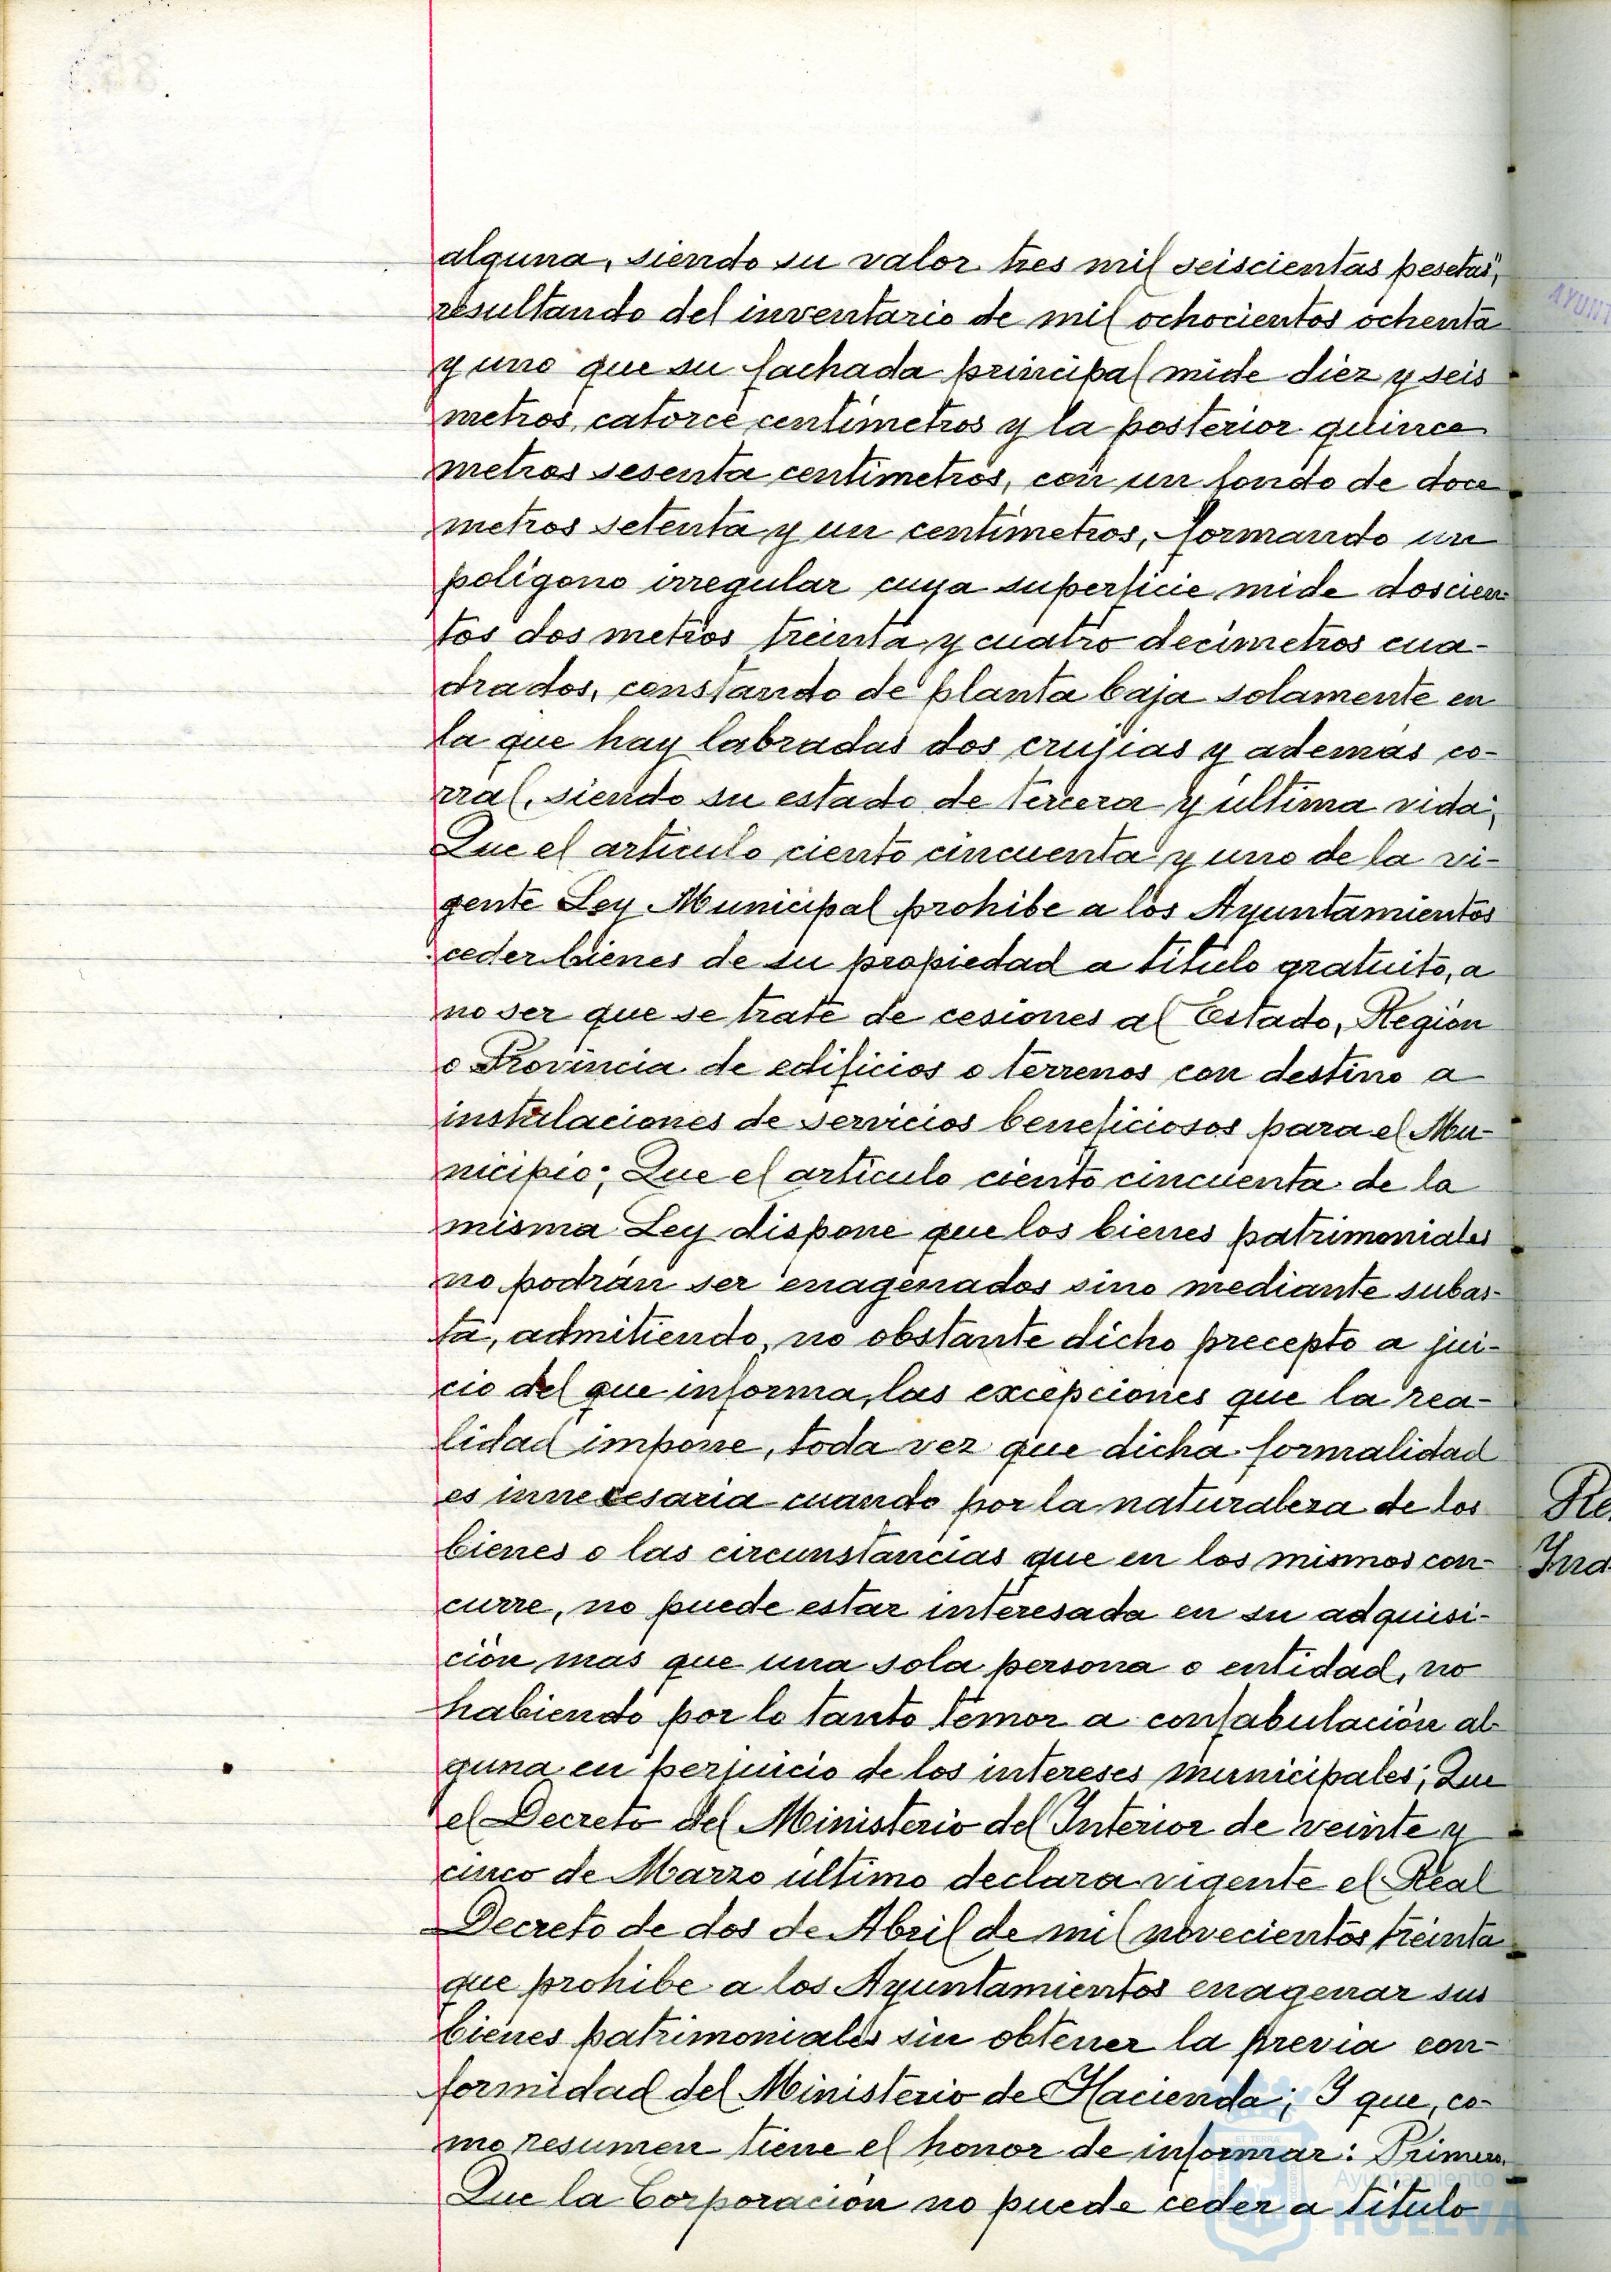 alguna, siendo su valor tres mil seiscientas pesetas",
resultando del inventario de mil ochocientos ochenta
y uno que su fachada principal mide diez y seis
metros catorce centímetros y la posterior quince
metros sesenta centímetros, con un fondo de doce
metros setenta y un centímetros, formando un
polígono irregular cuya superficie mide doscien-
tos dos metros treinta y cuatro decímetros cua-
drados, constando de planta baja solamente en
la que hay labradas dos crujias y además co-
rral, siendo su estado de tercera y última vida;
Que el artículo ciento cincuenta y uno de la vi-
gente Ley Municipal prohibe a los Ayuntamientos
ceder bienes de su propiedad a título gratuito, a
no ser que se trate de cesiones al Estado, Región
o Provincia de edificios o terrenos con destino a
instalaciones de servicios beneficiosos para el Mu-
nicipio; Que el artículo ciento cincuenta de la
misma Ley dispone que los bienes patrimoniales
no podrán ser enagenados sino mediante subas-
ta, admitiendo, no obstante dicho precepto a jui-
cio del que informa, las excepciones que la rea-
lidad impone, toda vez que dicha formalidad
es innecesaria cuando por la naturaleza de los
bienes o las circunstancias que en los mismos con-
curre, no puede estar interesada en su adquisi-
ción mas que una sola persona o entidad, no
habiendo por lo tanto temor a confabulación al-
guna en perjuicio de los intereses municipales; Que
el Decreto del Ministerio del Interior de veinte y
cinco de Marzo último declara vigente el Real
Decreto de dos de Abril de mil novecientos treinta
que prohibe a los Ayuntamientos enagenar sus
bienes patrimoniales sin obtener la previa con-
formidad del Ministerio de Hacienda; Y que, co-
mo resumen tiene el honor de informar: Primero.
Que la Corporación no puede ceder a título
AYUNT
Re
Ind
Ayuntamiento
HUELVA